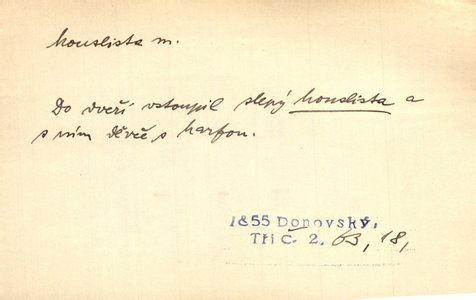 houslista m.
Do dveří vstoupil slepý houslista a
s ním děvče s harfou.
1855 Donovský,
Tři Č. 2. 63, 18,